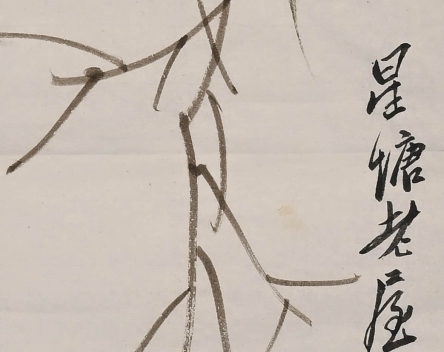 星塘老屋